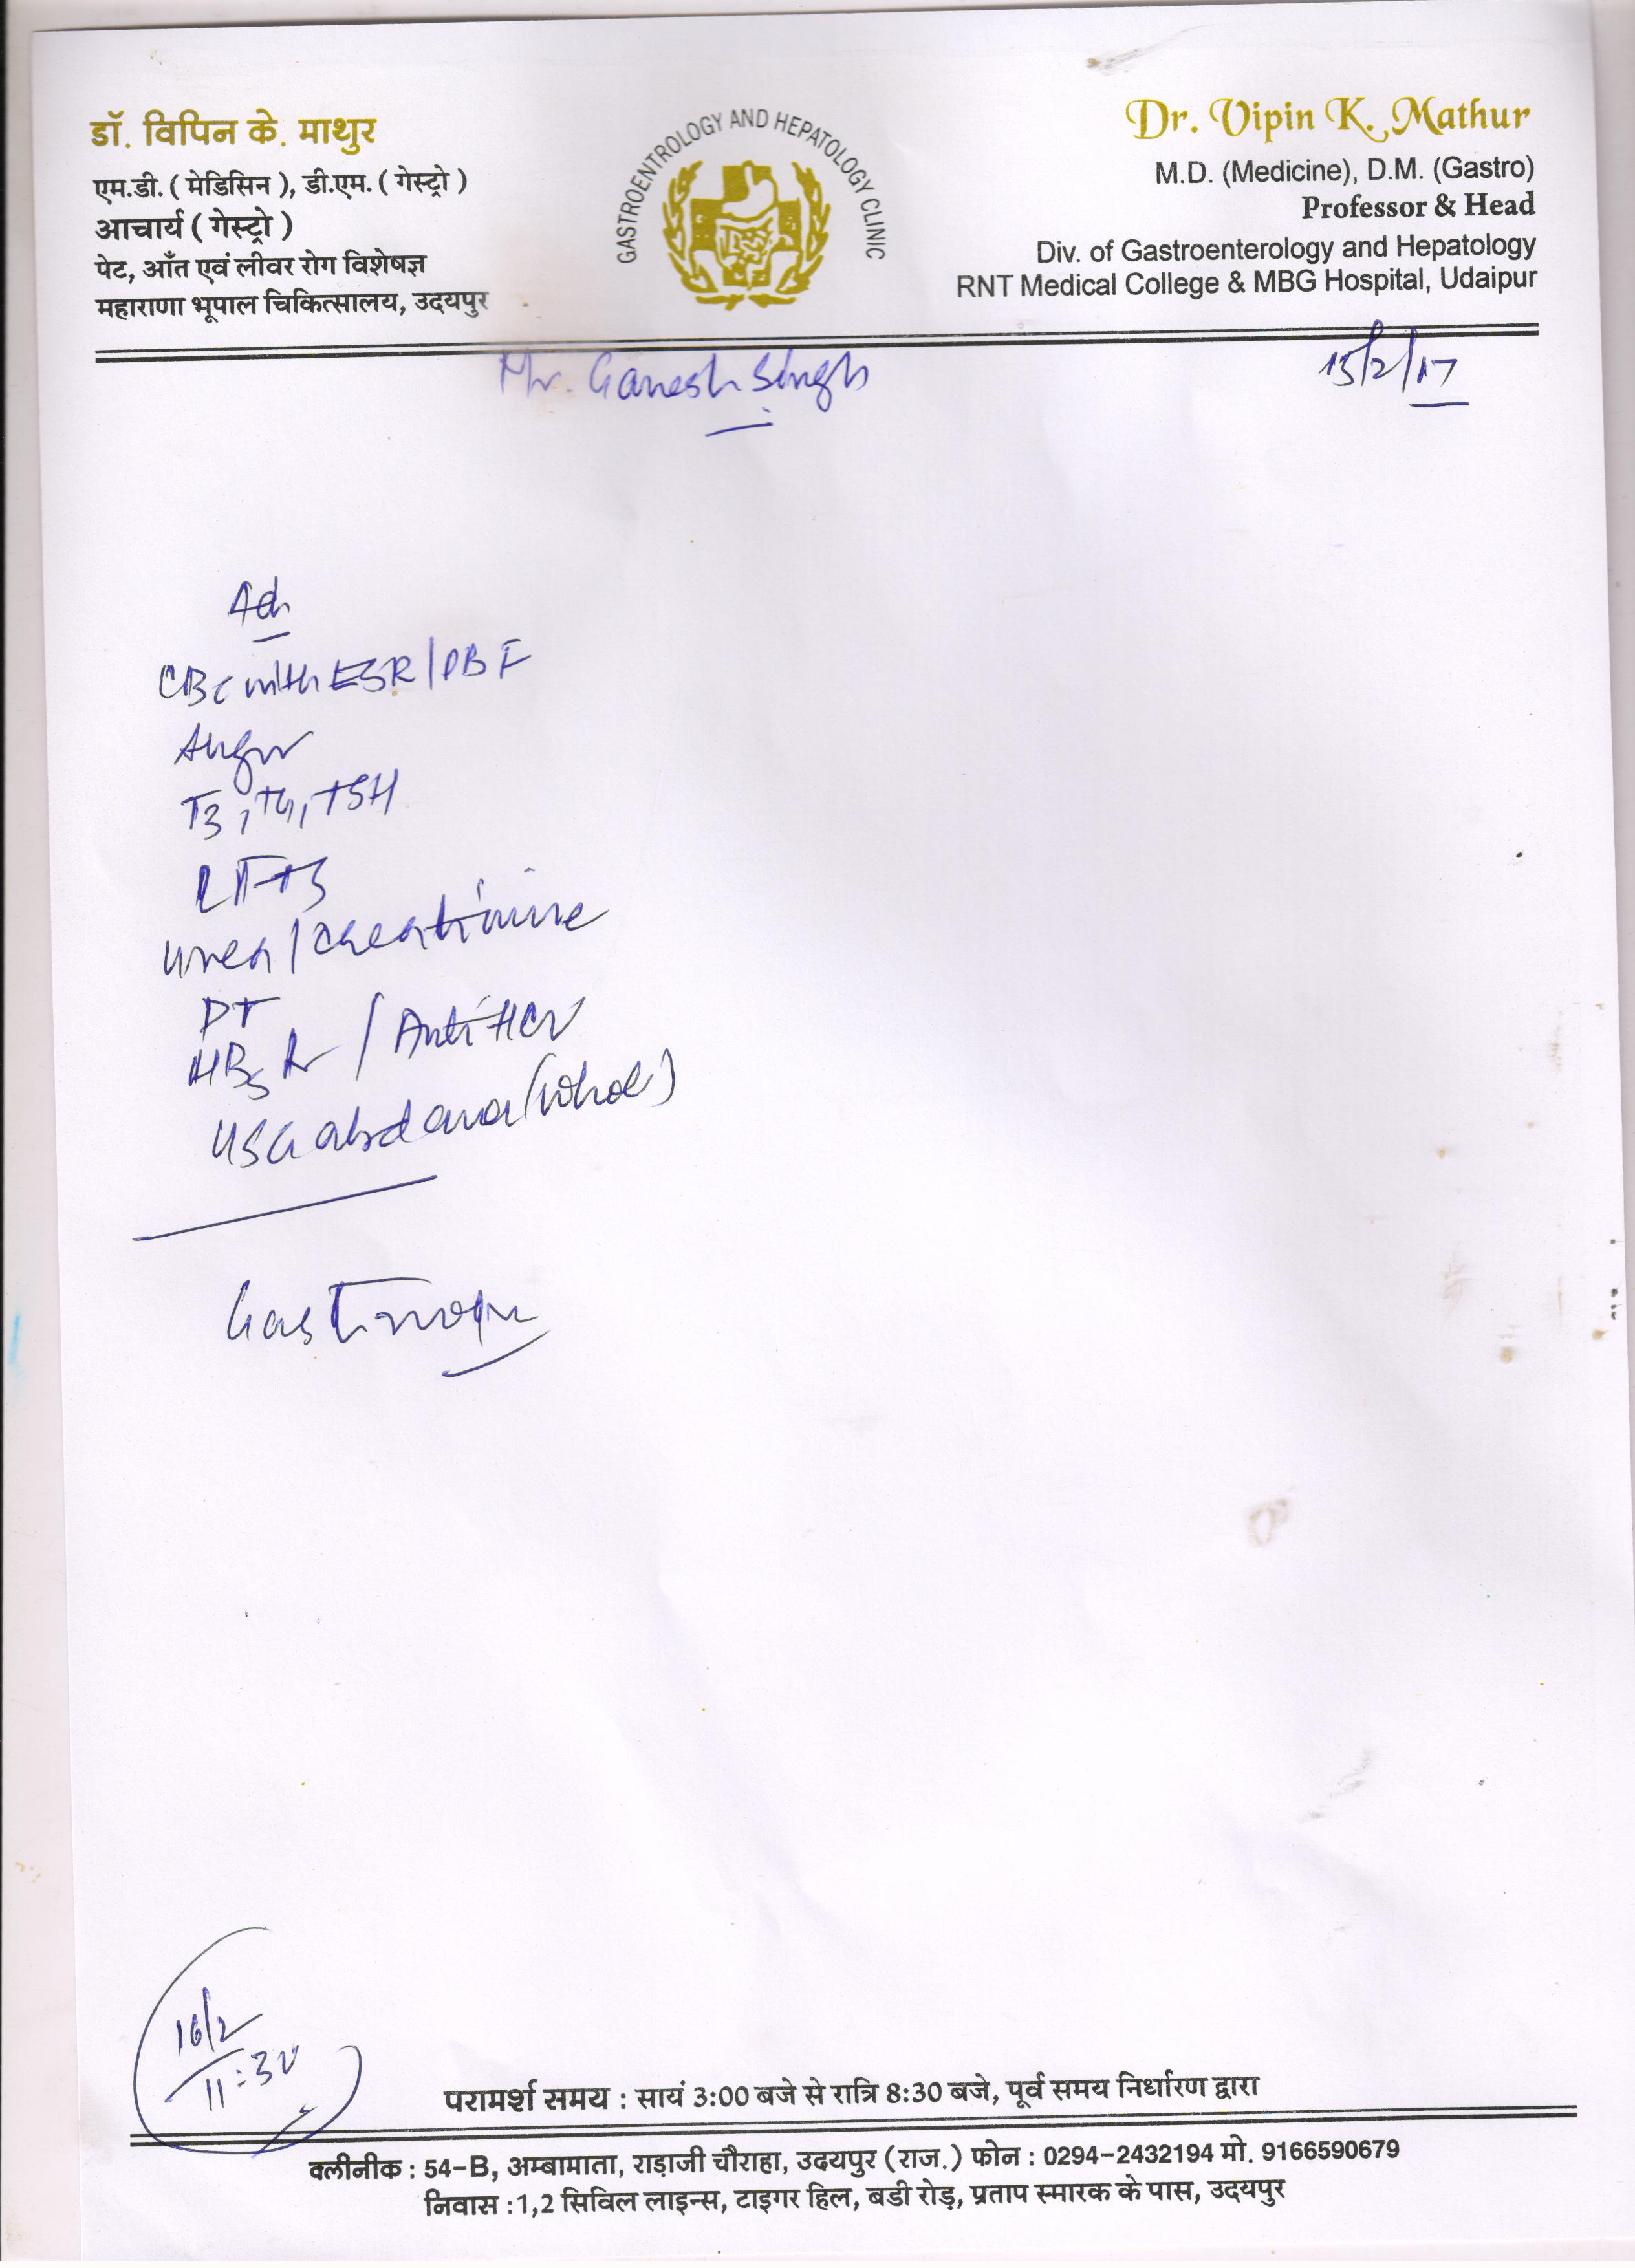 डॉ. विपिन के. माथुर
एम.डी. ( मेडिसिन ), डी.एम. ( गेस्ट्रो )
आचार्य ( गेस्ट्रो )
पेट, आँत एवं लीवर रोग विशेषज्ञ
महाराणा भूपाल चिकित्सालय, उदयपुर
GASTROENTROLOGY AND HEPATOLOGY CLINIC
Dr. Vipin K. Mathur
M.D. (Medicine), D.M. (Gastro)
Professor & Head
Div. of Gastroenterology and Hepatology
RNT Medical College & MBG Hospital, Udaipur
Mr. Ganesh Singh
15/2/17
CBC with ESR/PBF
Sugar
T3, T4, TSH
LFTs
Urea/creatinine
PT
HBsA / Anti HCV
USG (Whole)
16/2
11:30
परामर्श समय : सायं 3:00 बजे से रात्रि 8:30 बजे, पूर्व समय निर्धारण द्वारा
क्लीनीक : 54-B, अम्बामाता, राड़ाजी चौराहा, उदयपुर (राज.) फोन : 0294-2432194 मो. 9166590679
निवास :1,2 सिविल लाइन्स, टाइगर हिल, बडी रोड़, प्रताप स्मारक के पास, उदयपुर